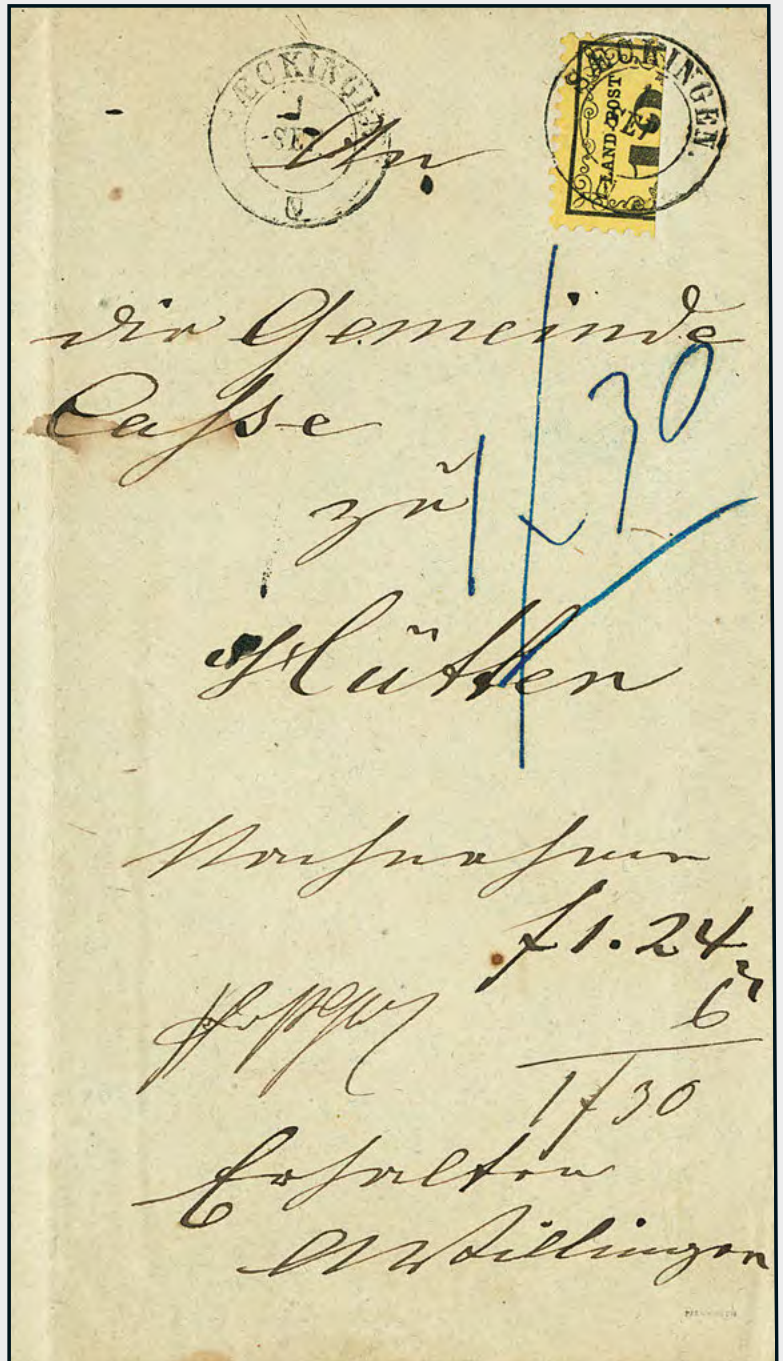 SÆCKINGEN
1
SEP
N.
SÆCKINGEN.
SEP
LAND-POST
12
An
die Gemeinde
Casse
zu
Hütten
1 f 30
Nachnahme
f 1. 24
6
1 f 30
Erhalten